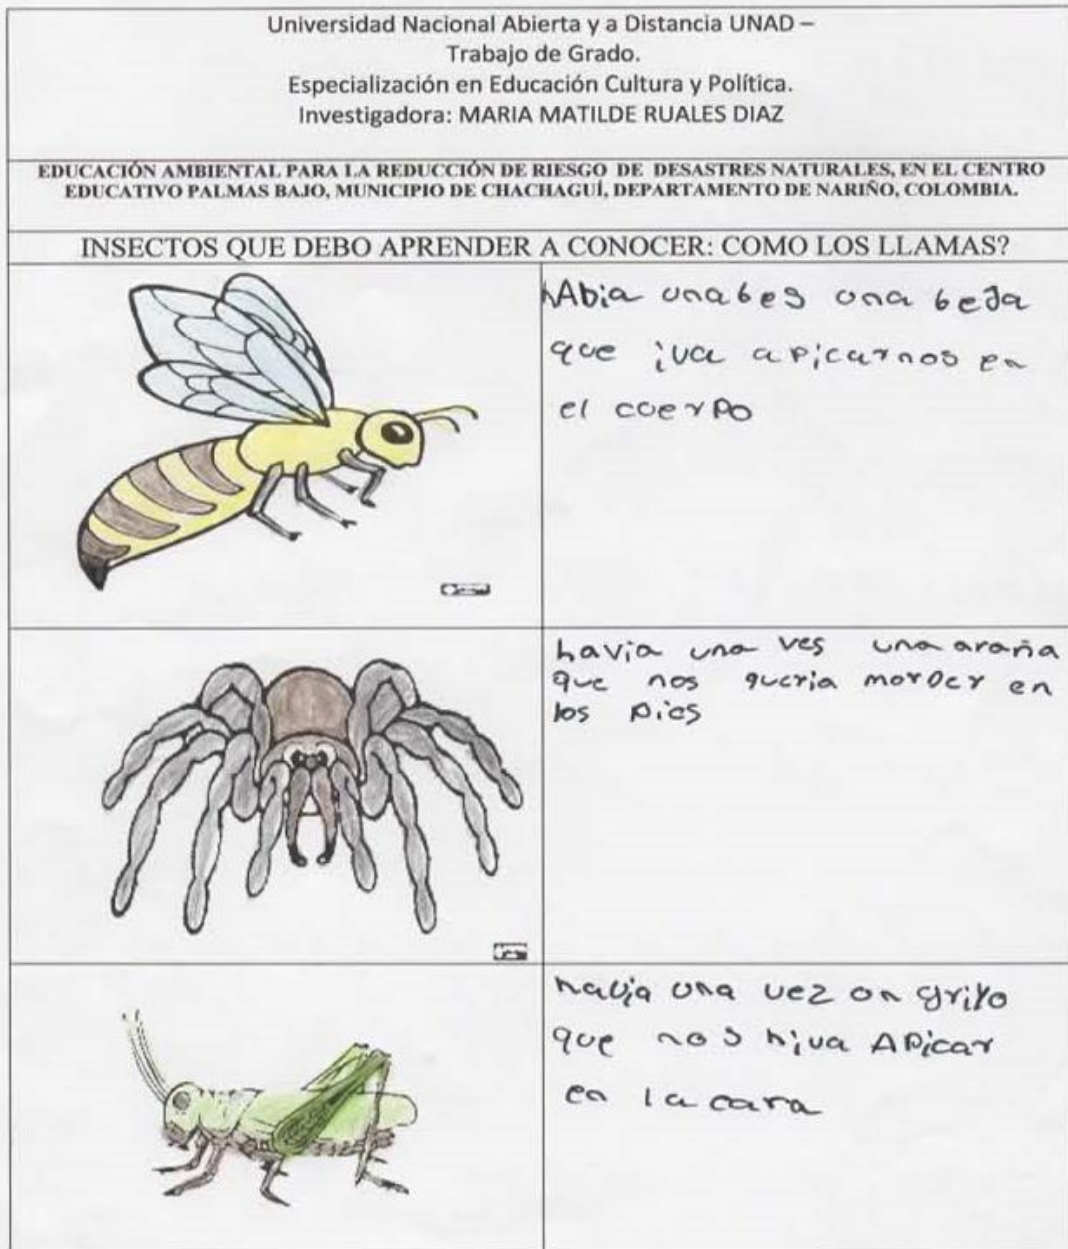 Universidad Nacional Abierta y a Distancia UNAD –
Trabajo de Grado.
Especialización en Educación Cultura y Política.
Investigadora: MARIA MATILDE RUALES DIAZ
EDUCACIÓN AMBIENTAL PARA LA REDUCCIÓN DE RIESGO DE DESASTRES NATURALES, EN EL CENTRO
EDUCATIVO PALMAS BAJO, MUNICIPIO DE CHACHAGUÍ, DEPARTAMENTO DE NARIÑO, COLOMBIA.
INSECTOS QUE DEBO APRENDER A CONOCER: COMO LOS LLAMAS?
hAbia unabes una beja
que iva apicarnos en
el cuerpo
havia una ves una araña
que nos queria morder en
los pies
havia una vez un griyo
que nos hiva Apicar
en la cara